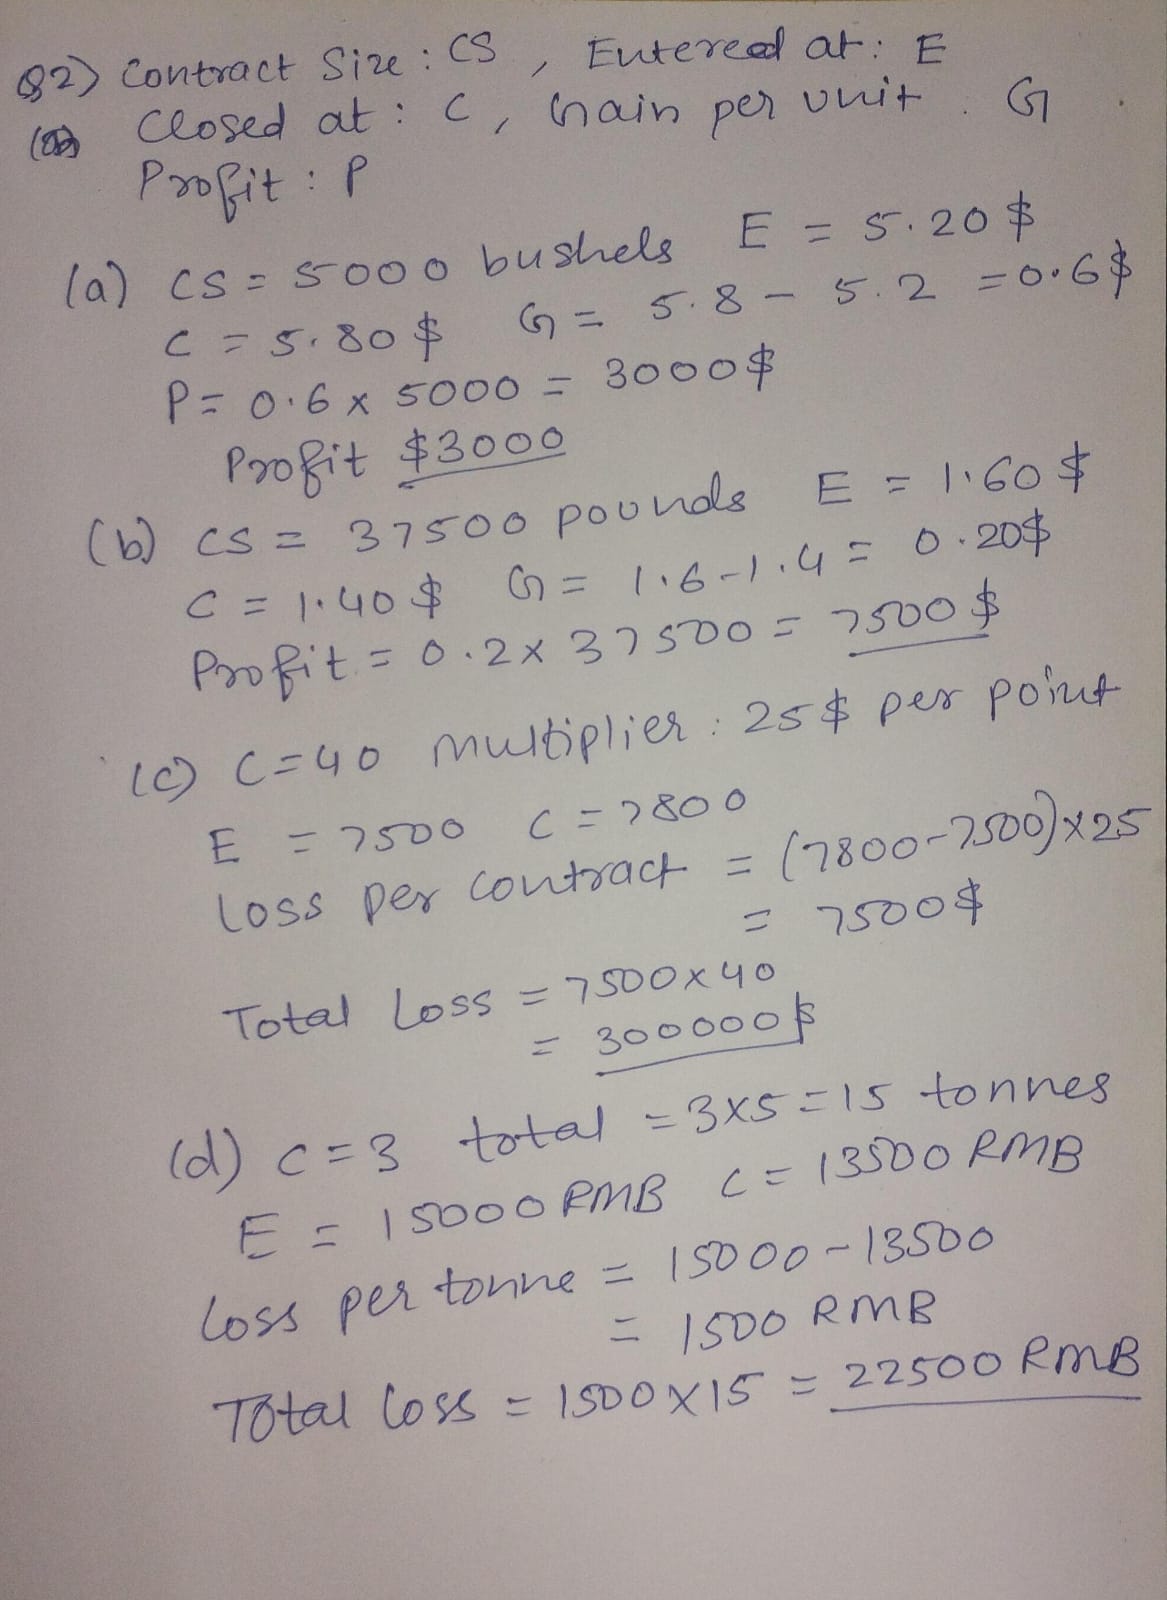 Q2) Contract Size : CS , Entered at : E
Closed at : C , Gain per unit . G
Profit : P
(a) CS = 5000 bushels E = 5.20 $
C = 5.80 $ G = 5.8 - 5.2 = 0.6 $
P = 0.6 x 5000 = 3000 $
Profit $3000
(b) CS = 37500 pounds E = 1.60 $
C = 1.40 $ G = 1.6 - 1.4 = 0.20$
Profit = 0.2 x 37500 = 7500 $
(c) C = 40 multiplier : 25 $ per point
E = 7500 C = 7800
Loss per contract = (7800 - 7500) x 25
= 7500 $
Total Loss = 7500 x 40
= 300000 $
(d) C = 3 total = 3 x 5 = 15 tonnes
E = 15000 RMB C = 13500 RMB
Loss per tonne = 15000 - 13500
= 1500 RMB
Total Loss = 1500 x 15 = 22500 RMB